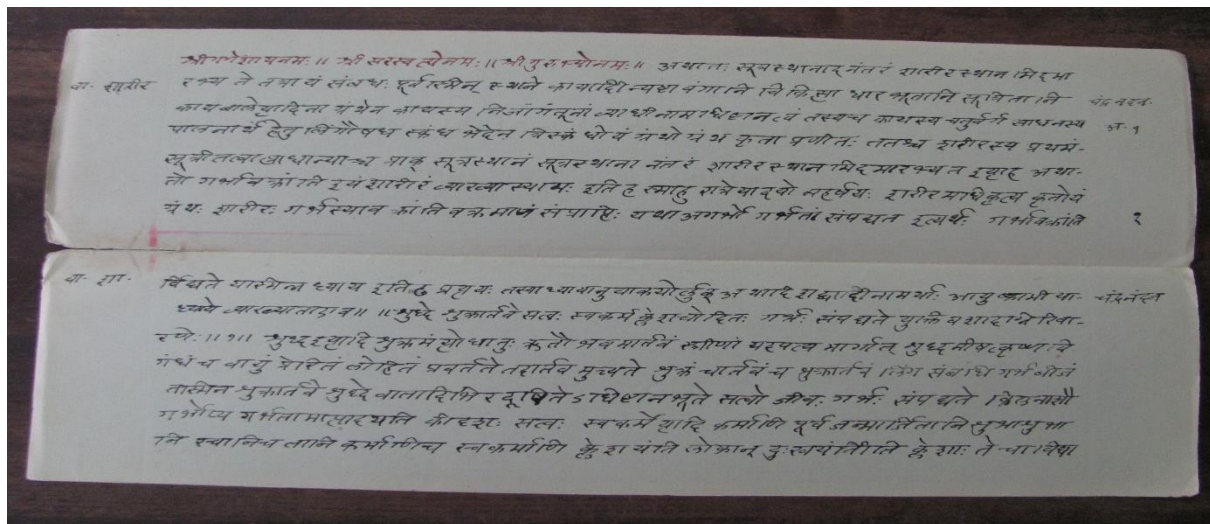 श्रीगणेशायनमः ॥ श्री सरस्वत्यैनमः ॥ श्रीगुरुभ्योनमः ॥ अथातः सूत्रस्थानाद् नंतरं शारीरस्थानमिदमा
वा. शारीर
रभ्यते तथायं संबंधः पूर्वस्मिन् स्थाने कायादीन्यष्टावंगानि चिकित्साधारभूतानि सूचितानि
चंद्रनंदन
कायबालेत्यादिना ग्रंथेन कायस्य व्याधीनामधिष्ठानत्वं तस्यच कायस्य चतुर्वर्ग साधनस्य
अ. १
पालनार्थं हेतुलिंगौषध स्कंध भेदेन त्रिस्कंधोयं ग्रंथो ग्रंथ कृता प्रणीतः ततश्च शरीरस्य प्रथमं
प्राक् सूत्रस्थानं सूत्रस्थाना नंतरं शारीरस्थानमिदमारभ्यत इत्याह अथा-
तो गर्भावक्रांतिं शारीरं व्याख्यास्यामः इतिह स्माहुरात्रेयादयो महर्षयः शरीरमधिकृत्य कृतोयं
ग्रंथः शारीरः गर्भस्याव क्रांति संप्राप्तिः यथा अगर्भो गर्भतां संपद्यत इत्यर्थः गर्भावक्रांति
१
वा. शा.
र्विद्यते यस्मिन्नध्याय इति प्रत्ययः अथादिशब्दादीनामर्थाः
चंद्रनंदन
ध्याये व्याख्यातावा ॥ ॥ शुद्धे शुक्रार्तवे सत्वः स्वकर्मक्लेशचोदितः गर्भः संपद्यते युक्तिवशादग्निरिवा-
रणौ ॥ १ ॥ शुद्धइत्यादि ऋतौ भवमार्तवं स्त्रीणां यदपत्य मार्गात् वि
गंधं च वायुप्रेरितं लोहितं प्रवर्तते तदार्तव मुच्यते शुक्रं चार्तवं च शुक्रार्तवं संबंधि गर्भबीजं
तस्मिन शुक्रार्तवे शुद्धे वातादिभिरदूषिते ऽधिष्ठानभूते सत्वो जीवः गर्भः संपद्यते
गर्भोप्य गर्भतामासादयति कीदृशः सत्वः स्वकर्मेत्यादि कर्माणि पूर्व जन्मार्जितानि शुभाशुभा
नि स्वानिच तानि कर्माणिच स्वकर्माणि क्लेशयंति लोकान् क्लेशाः ते चाविद्या